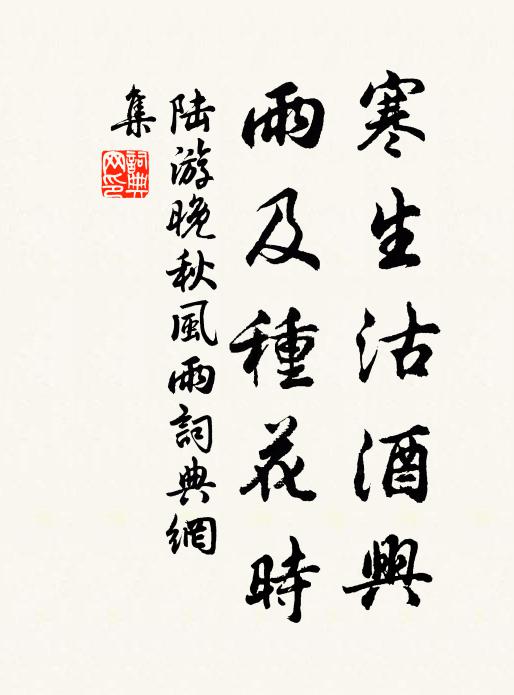 寒生沽酒興
雨及種花時
陸游晚秋風雨詞典網
集
詞典網印